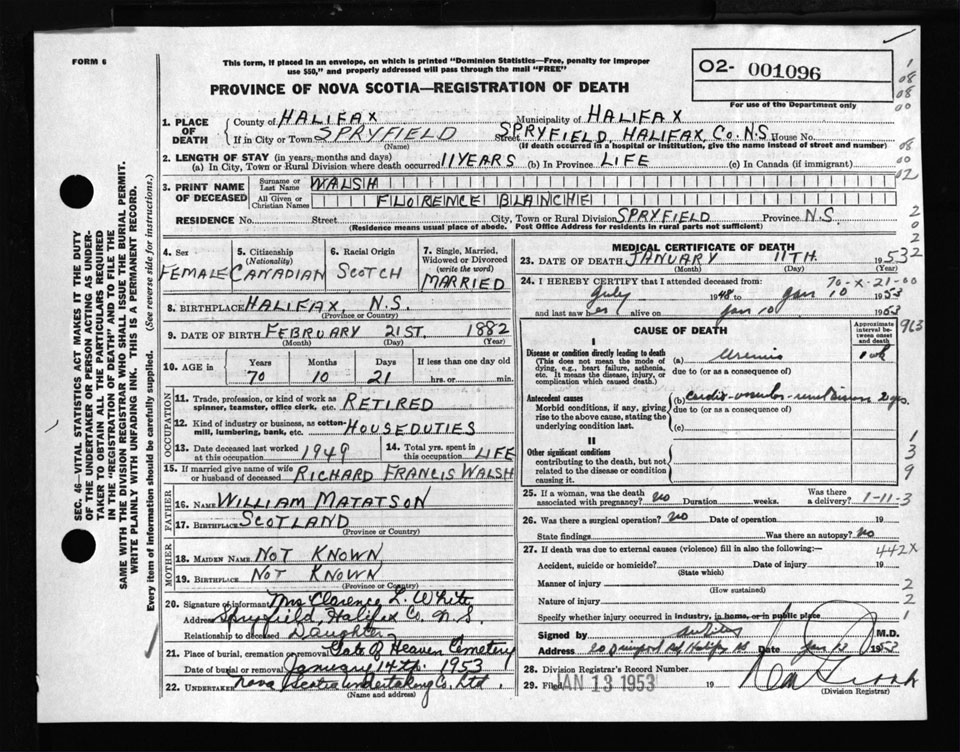 FORM 6
This form, if placed in an envelope, on which is printed "Dominion Statistics—Free, penalty for improper
use $50," and properly addressed will pass through the mail "FREE"
PROVINCE OF NOVA SCOTIA—REGISTRATION OF DEATH
02- 001096
For use of the Department only
1. PLACE OF DEATH
County of HALIFAX Municipality of HALIFAX
If in City or Town SPRYFIELD Street SPRYFIELD, HALIFAX, Co. N.S. House No.
(Name) (If death occurred in a hospital or institution, give the name instead of street and number)
2. LENGTH OF STAY (in years, months and days)
(a) In City, Town or Rural Division where death occurred 11 YEARS (b) In Province LIFE (c) In Canada (if immigrant)
3. PRINT NAME OF DECEASED
Surname or Last Name WALSH
All Given or Christian Names FLORENCE BLANCHE
RESIDENCE No. Street City, Town or Rural Division SPRYFIELD Province N.S.
(Residence means usual place of abode. Post Office Address for residents in rural parts not sufficient)
4. Sex FEMALE
5. Citizenship (Nationality) CANADIAN
6. Racial Origin SCOTCH
7. Single, Married, Widowed or Divorced (write the word) MARRIED
8. BIRTHPLACE HALIFAX, N.S.
(Province or Country)
9. DATE OF BIRTH FEBRUARY 21ST. 1882
(Month) (Day) (Year)
10. AGE in Years Months Days If less than one day
70 10 21 hrs. or min.
OCCUPATION
11. Trade, profession, or kind of work as
spinner, teamster, office clerk, etc. RETIRED
12. Kind of industry or business, as cotton-
mill, lumbering, bank, etc. HOUSEDUTIES
13. Date deceased last worked at this occupation 1949
14. Total yrs. spent in this occupation LIFE
15. If married give name of wife
or husband of deceased RICHARD FRANCIS WALSH
FATHER
16. Name WILLIAM MATATSON
17. Birthplace SCOTLAND
(Province or Country)
MOTHER
18. Maiden Name NOT KNOWN
19. Birthplace NOT KNOWN
(Province or Country)
20. Signature of informant Mrs Clarence L. White
Address Spryfield, Halifax Co. N.S.
Relationship to deceased Daughter
21. Place of burial, cremation or removal Gate of Heaven Cemetery
Date of burial or removal January 14th. 1953
22. UNDERTAKER Nova Scotia Undertaking Co. Ltd.
(Name and address)
MEDICAL CERTIFICATE OF DEATH
23. DATE OF DEATH JANUARY 11TH. 1953
(Month) (Day) (Year)
70-X-21-00
24. I HEREBY CERTIFY that I attended deceased from:
July 1948 to Jan 10 1953
and last saw her alive on Jan 10 1953
CAUSE OF DEATH
Approximate interval between onset and death
I
Disease or condition directly leading to death
(This does not mean the mode of
dying, e.g., heart failure, asthenia,
etc. It means the disease, injury, or
complication which caused death.)
(a) Uremia 1 wk
due to (or as a consequence of)
Antecedent causes
Morbid conditions, if any, giving
rise to the above cause, stating the
underlying condition last.
(b) Cardio-vascular-renal Disease 2 yrs.
due to (or as a consequence of)
(c)
II
Other significant conditions
contributing to the death, but not
related to the disease or condition
causing it.
25. If a woman, was the death
associated with pregnancy? no Duration weeks. Was there a delivery? 1-11-3
26. Was there a surgical operation? no Date of operation 19
State findings Was there an autopsy? no
27. If death was due to external causes (violence) fill in also the following:— 442X
Accident, suicide or homicide? Date of injury 19
(State which)
Manner of injury
(How sustained)
Nature of injury
Specify whether injury occurred in industry, in home, or in public place
Signed by M.D.
Address Halifax NS Date Jan 1953
28. Division Registrar's Record Number
29. Filed JAN 13 1953 19
(Division Registrar)
SEC. 46—VITAL STATISTICS ACT MAKES IT THE DUTY
OF THE UNDERTAKER OR PERSON ACTING AS UNDER-
TAKER TO OBTAIN ALL THE PARTICULARS REQUIRED
IN THE "REGISTRATION OF DEATH" AND TO FILE THE
SAME WITH THE DIVISION REGISTRAR WHO SHALL ISSUE THE BURIAL PERMIT.
WRITE PLAINLY WITH UNFADING INK. THIS IS A PERMANENT RECORD.
Every item of information should be carefully supplied. (See reverse side for instructions.)
1
08
08
00
08
00
02
2
0
2
2
963
1
3
9
2
2
1